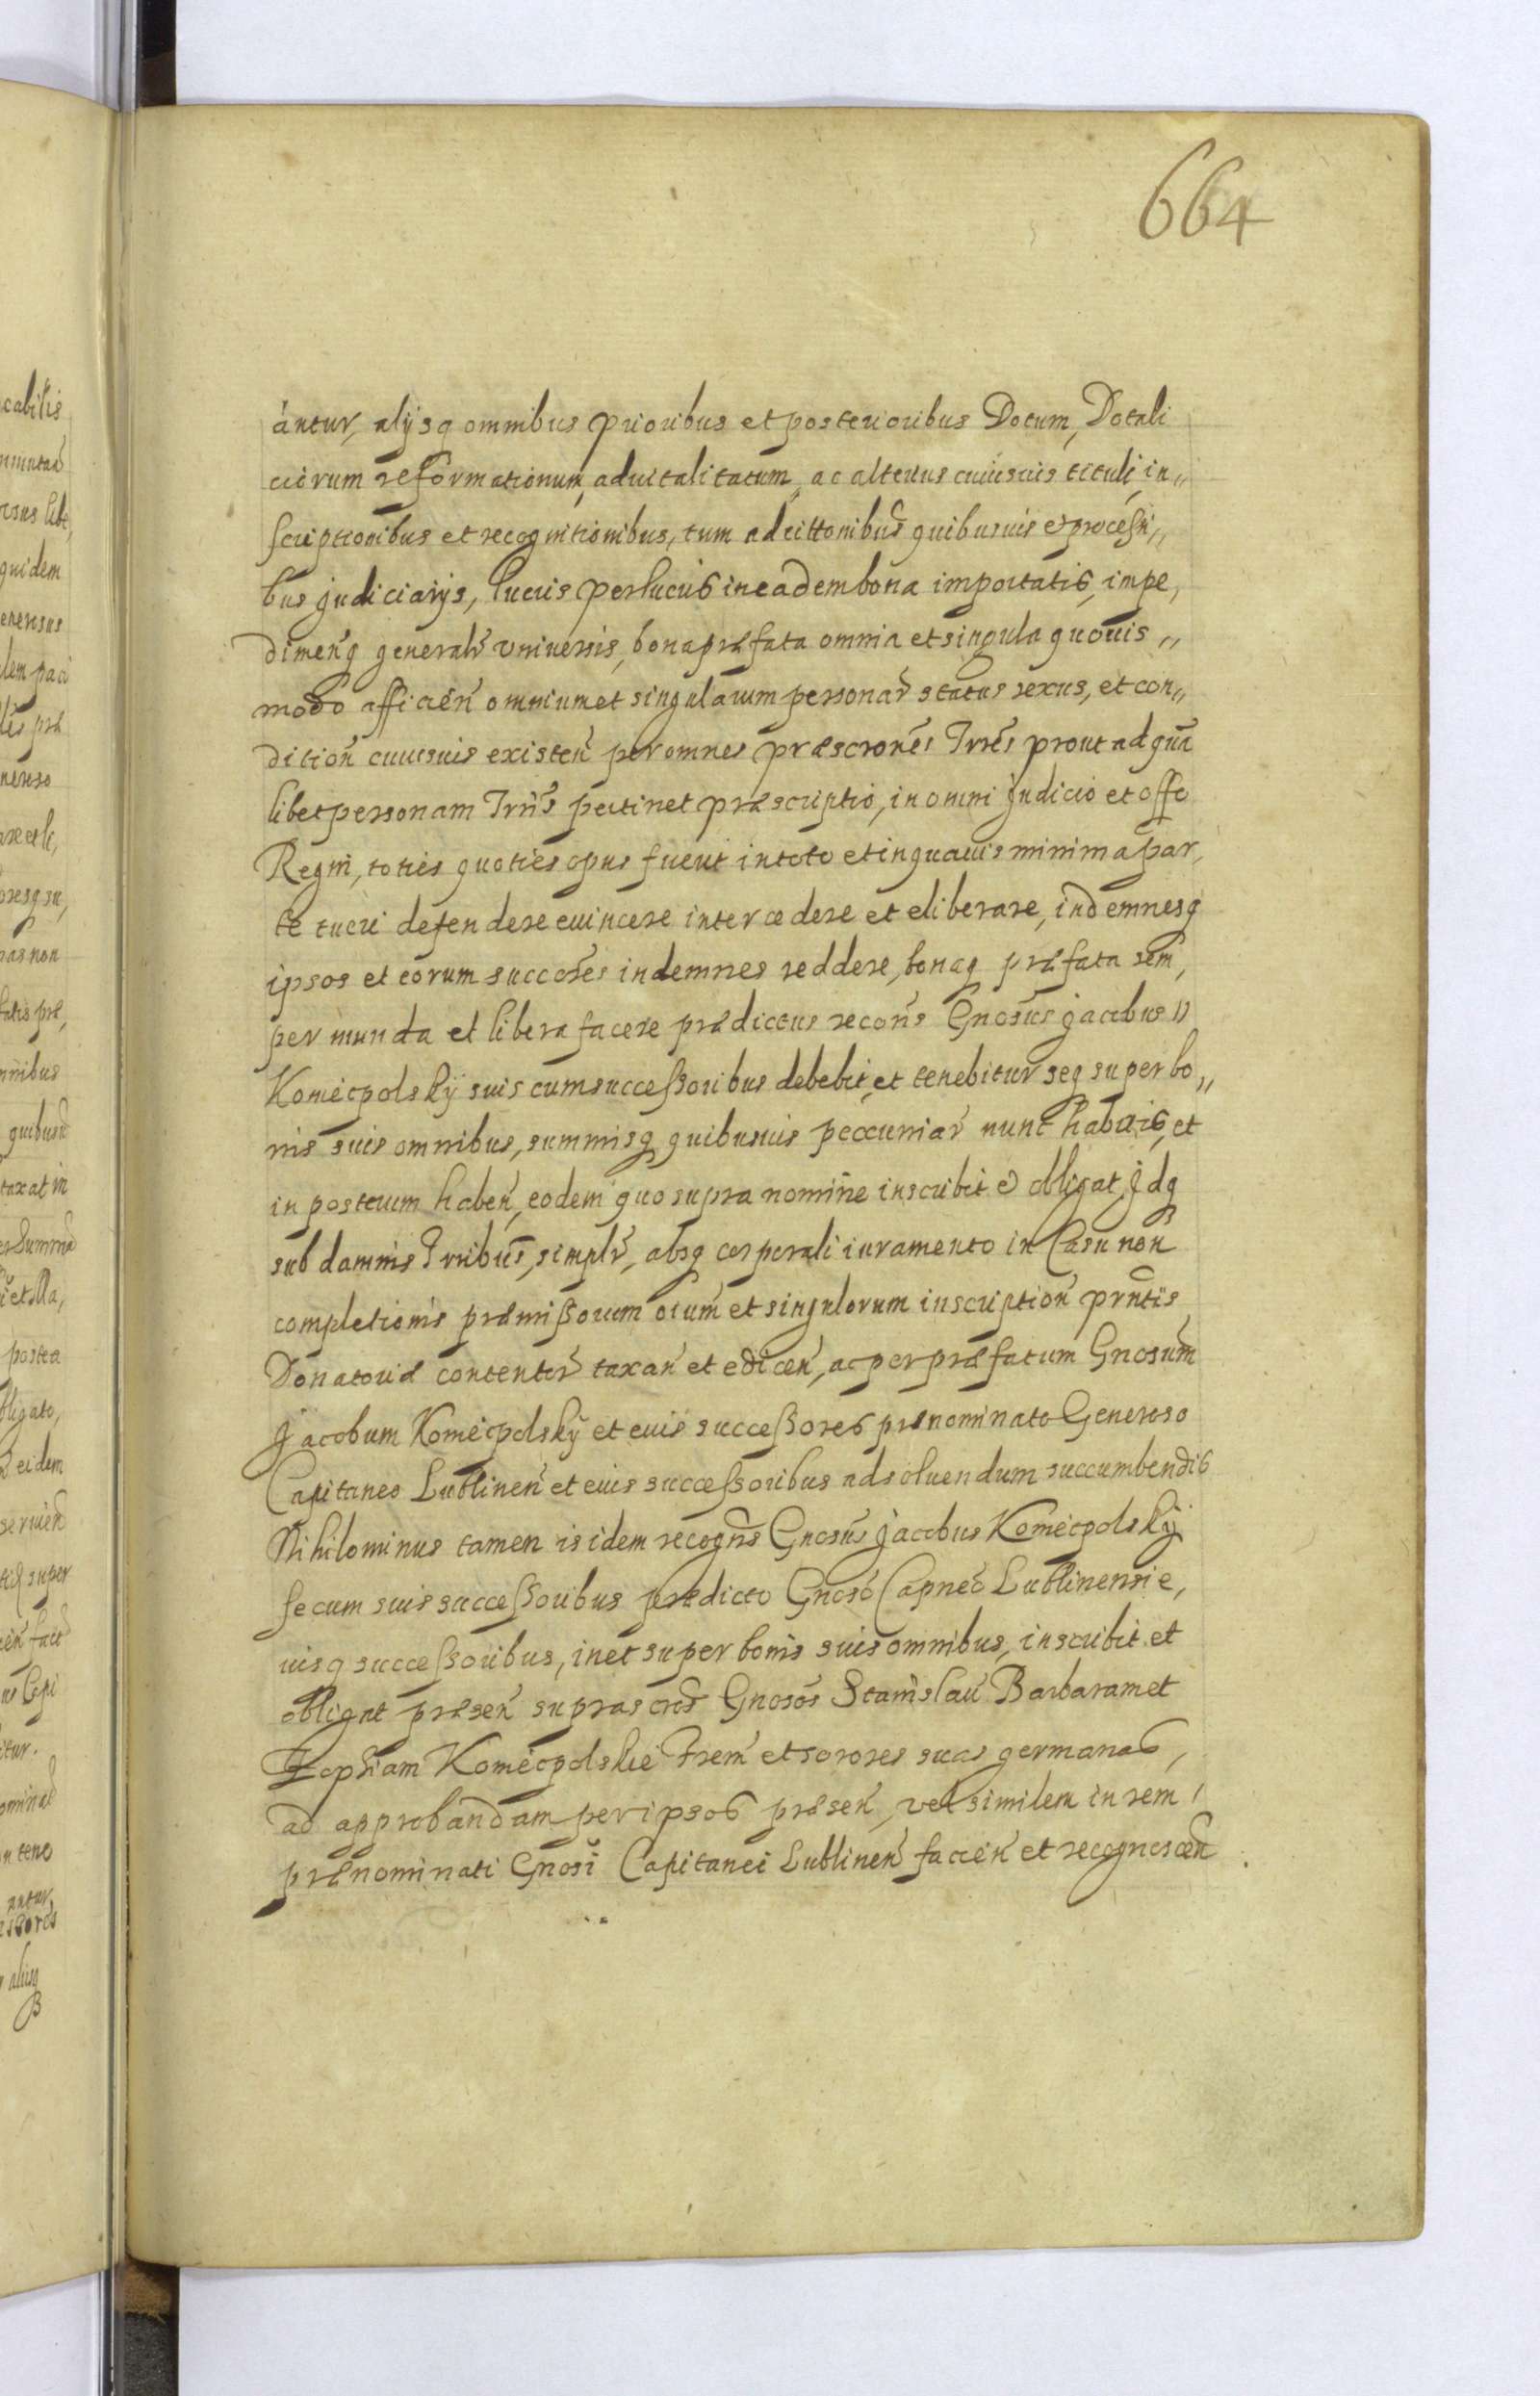 664
antur, alijsq omnibus prioribus et posterioribus Dotum, Dotali
ciorum reformationum, aduitalitatum, ac alterius cuiusuis tituli, in,,
scriptionibus et recognitionibus, tum adcittonibus quibusuis et processi,,
bus judiciarijs, lucris perlucris in eadem bona importatis, impe,
dimenq generalr vniuersis, bona præfata omnia et singula quouis,,
modo afficien omnium et singularum personar status sexus, et con,,
dition cuiusuis existen per omnes præscrones Trres prout ad qua
libet personam Trris pertinet præscriptio, in omni judicio et offo
Regni, toties quoties opus fuerit in toto et in quauis minima par,
te tueri defendere euincere intercedere et eliberare, indemnesq
ipsos et eorum succores indemnes reddere, bonaq præfata sem,
per munda et libera facere prædictus recons Gnosus jacobus,,
Koniecpolskÿ suis cum successoribus debebit, et tenebitur seq super bo,,
nis suis omnibus, summisq quibusuis pecuniar nunc habitis, et
in posterum haben, eodem quo supra nomine inscribit et obligat, Jdq
sub damnis Trribus, simplr, absq corporali iuramento in Casu non
completionis præmissorum oium et singulorum inscription prntis
Donatoriæ contentor taxan et edicen, ac per præfatum Gnosum
Jacobum Koniecpolskÿ et eius successores prænominato Generoso
Capitaneo Lublinen et eius successoribus ad soluendum succumbendis
Nihilominus tamen is idem recogns Gnosus Jacobus Koniecpolskÿ
se cum suis successoribus prædicto Gnoso Capneo Lublinensi e,
iusq successoribus, in et super bonis suis omnibus, inscribit et
obligat præsen supras crs Gnosos Stanislau Barbaram et
Zophiam Koniecpolskie Frem et sorores suas germanas,
ad approbandam per ipsos præsen, vel similem in rem,
prænominati Gnosi Capitanei Lublinen facien et recognoscen